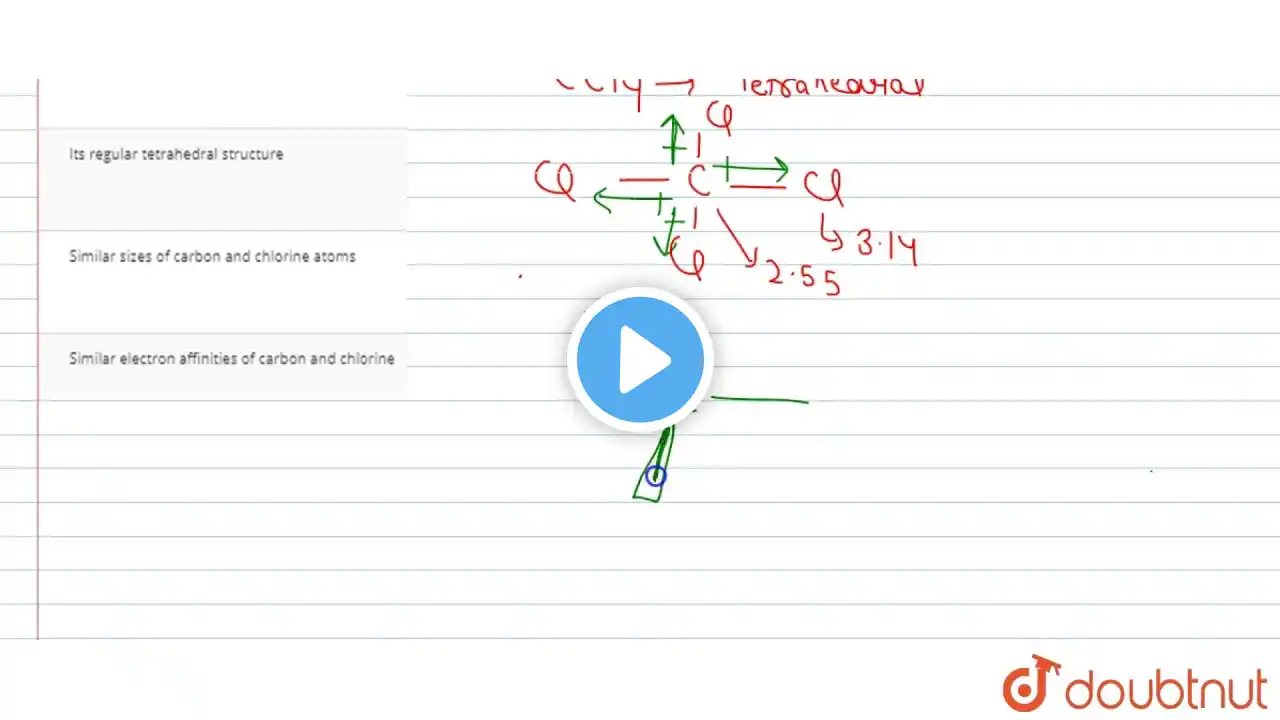 CCl4 → Tetrahedral
Cl
Its regular tetrahedral structure
Cl C Cl
3.14
Similar sizes of carbon and chlorine atoms
Cl 2.55
Similar electron affinities of carbon and chlorine
doubtnut